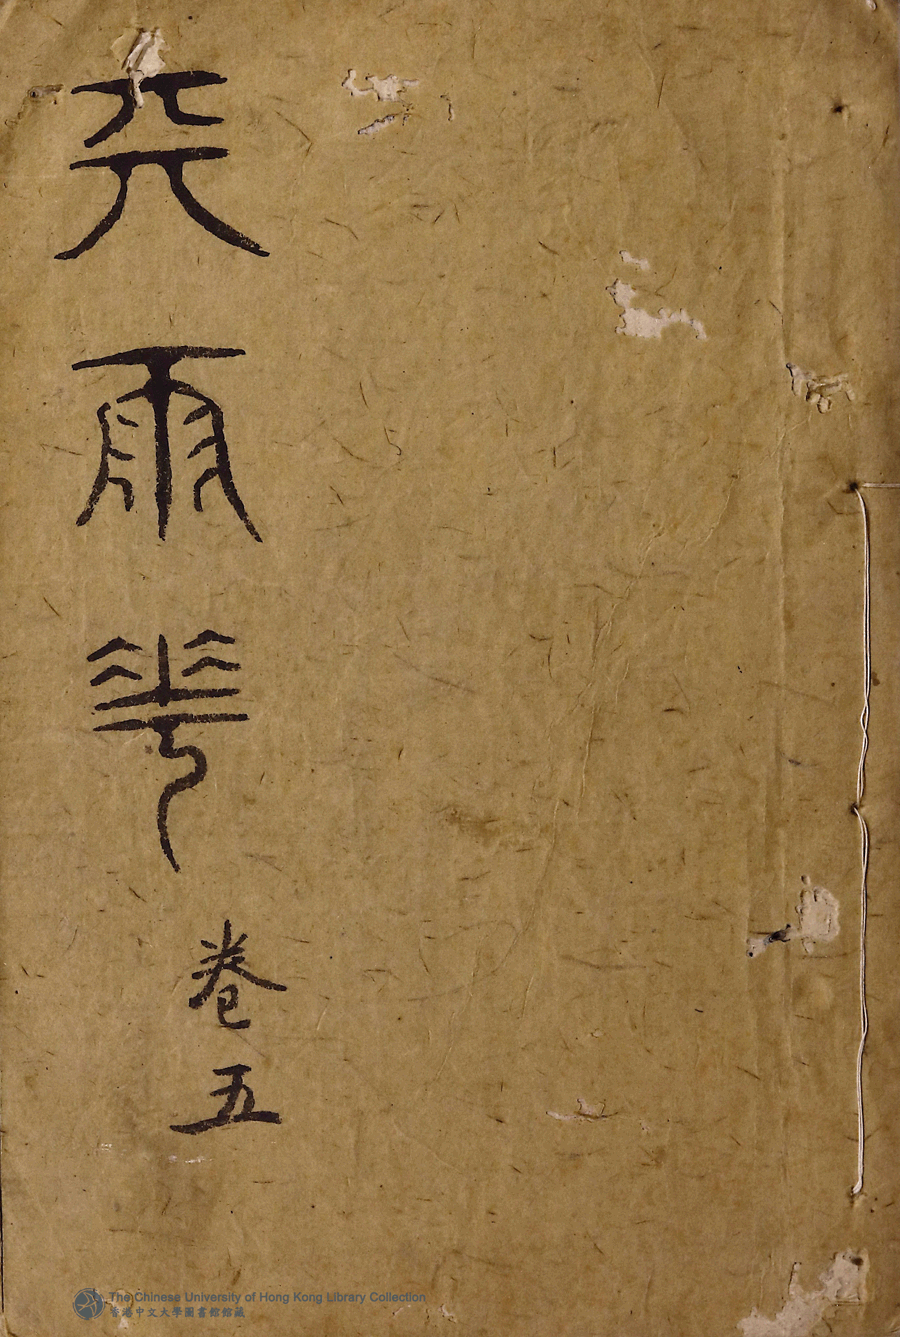 天雨花
卷五
The Chinese University of Hong Kong Library Collection
香港中文大學圖書館館藏